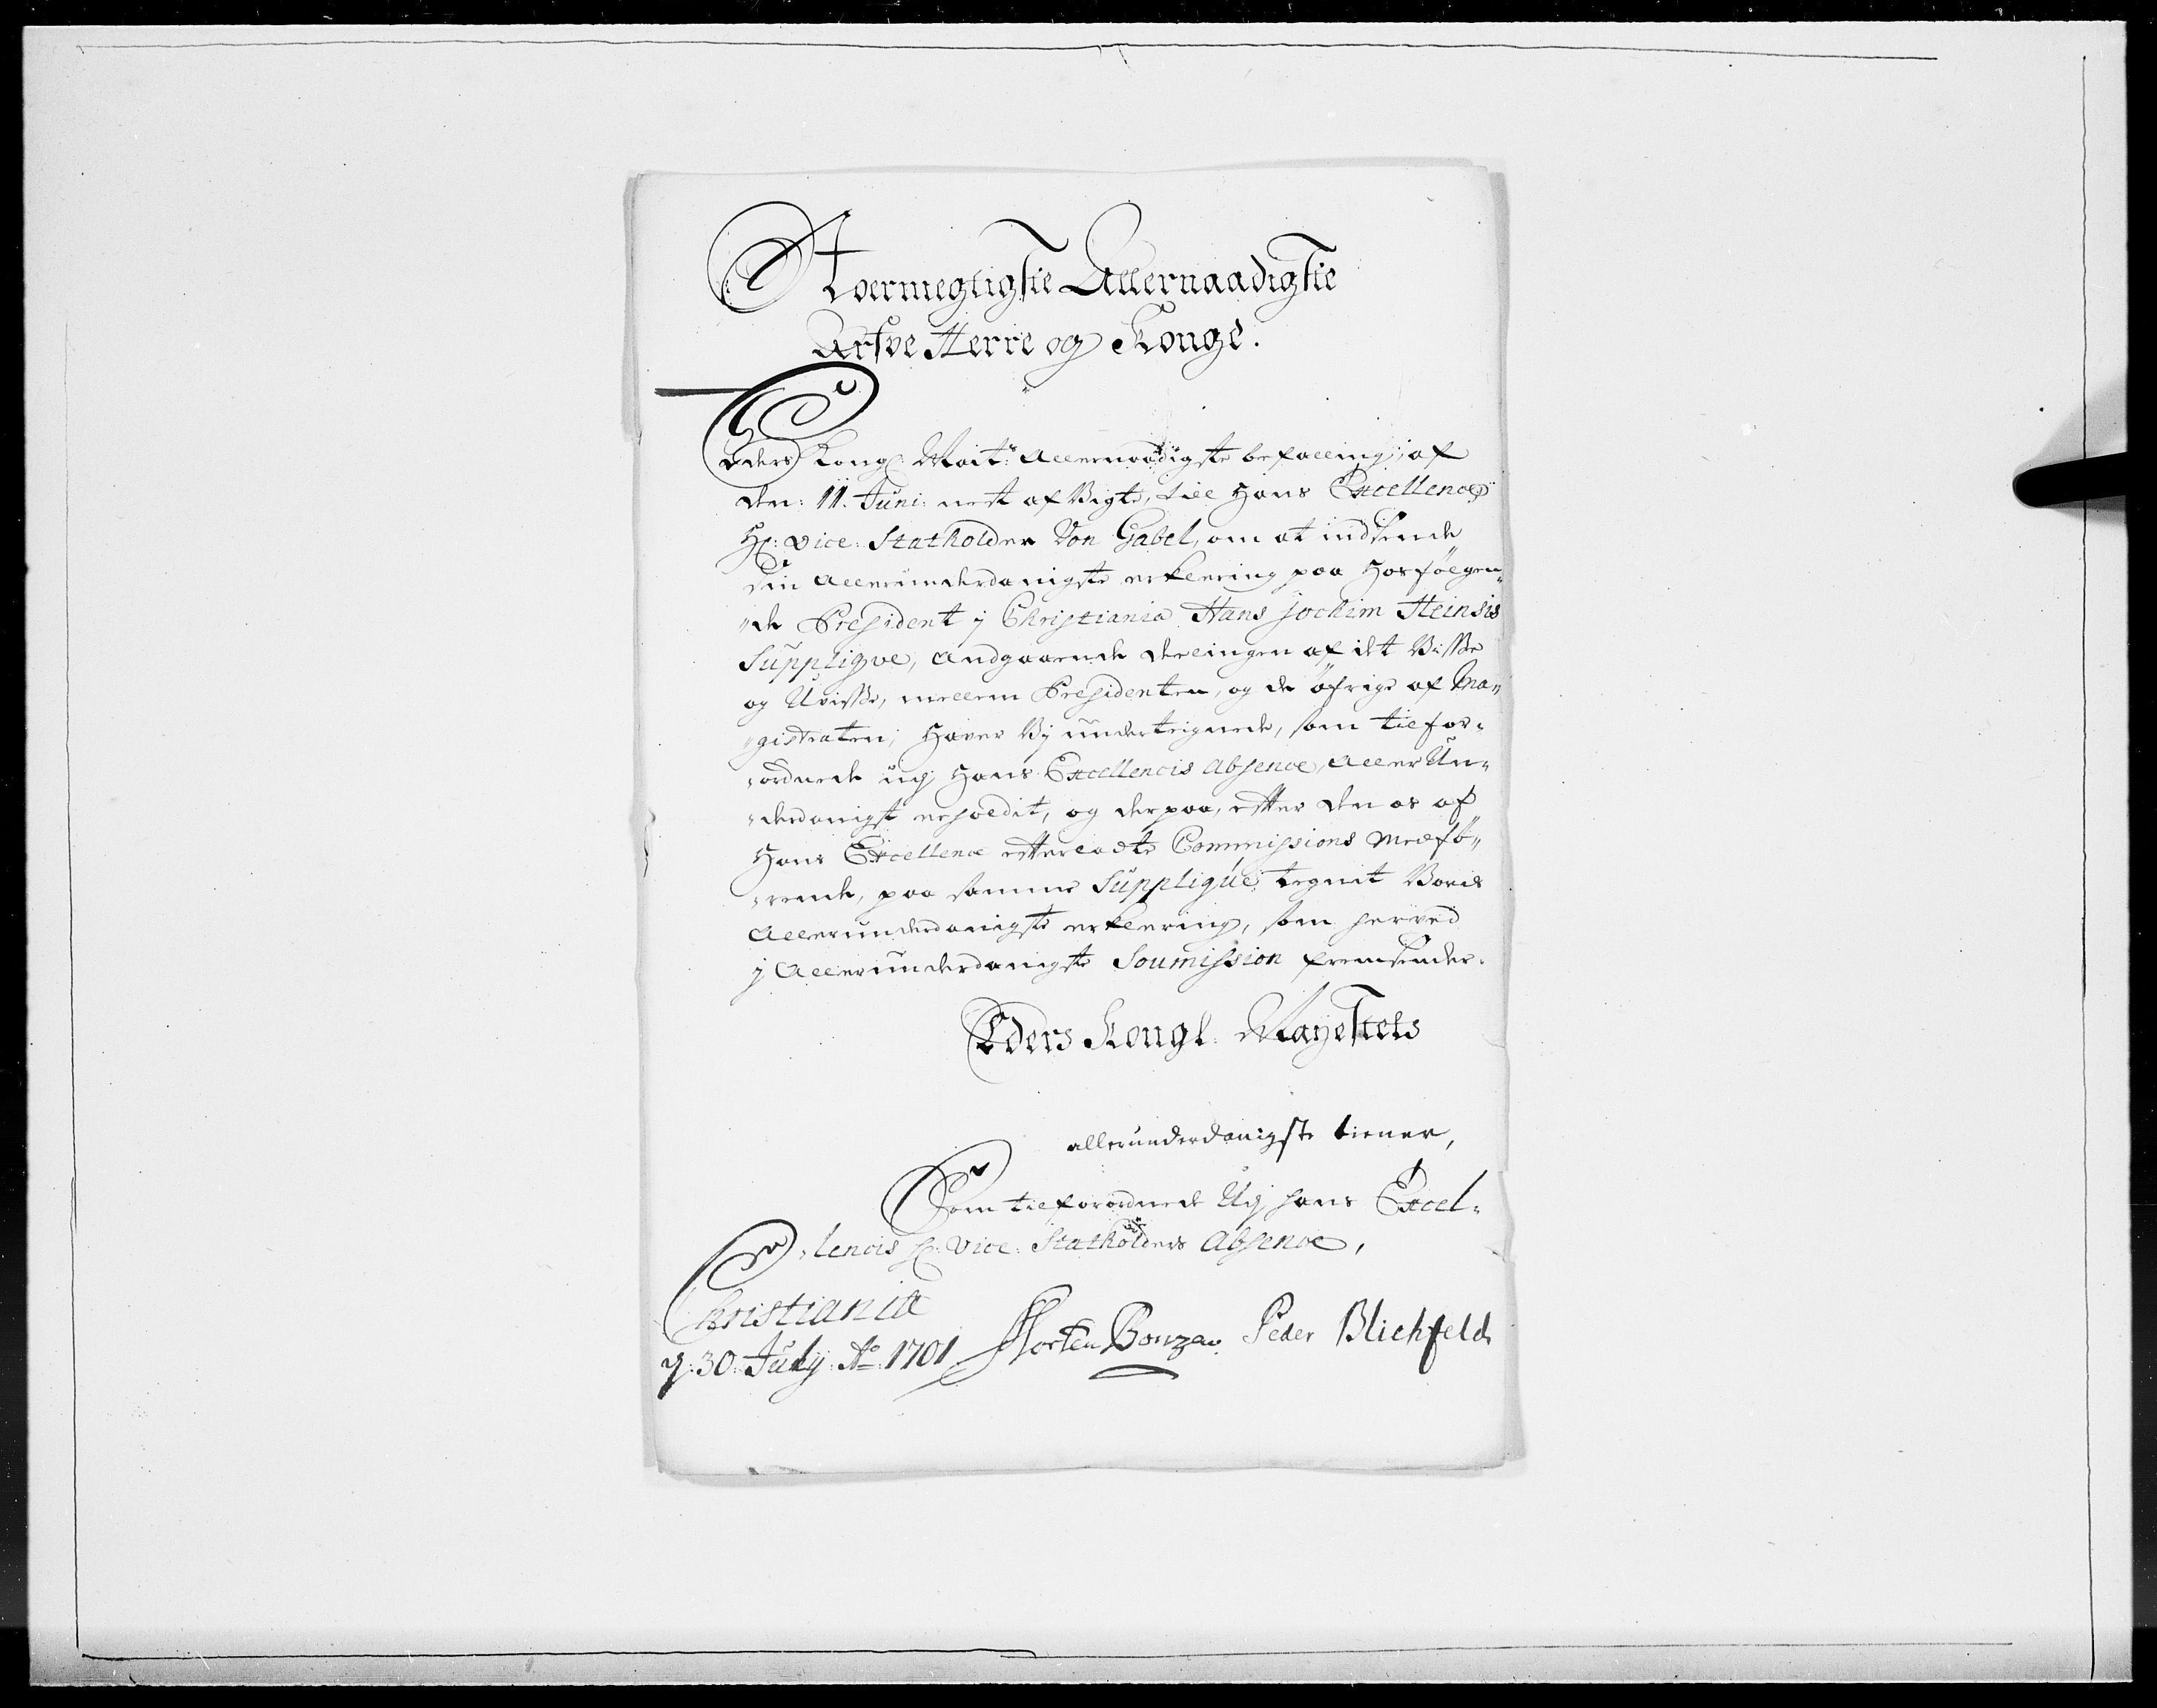 Stoermegtigste Allernaadigste
Arfve Herre og Konge.
Eders Kongl: Mait:s Allernaadigste befalling, af
den: 11. Juni: nest afvigte, till Hans Excellence
Hr: Vice: Statholder Von Gabel, om at indsende
sin allerunderdanigste erklering paa Hosfölgen„
„de President j Christiania Hans Jochim Heinsis
Suppliqve, andgaaende deelingen af det visse
og Uvisse, mellem Presidenten, og de öfrige af Ma„
„gistraten; Haver Vj underteignede, som tilfor„
„ordnede udj Hans Excellencis Absence, Aller Un„
„derdanigst erholdit, og derpaa, efter den os af
Hans Excellence efterladte Commissions Medfö„
„rende, paa samme Supplique, tegnit Voris
Allerunderdanigste erklering, som herved
j Allerunderdanigste Soumission fremsender.
Eders Kongl. Mayestets
allerunderdanigste tiener,
Som tilforordnede Udj hans Excel„
„lencis Hr: Vice: Statholders Absence,
Christiania
d: 30: July: Ao: 1701 Morten Bonzau Peder Blichfeld